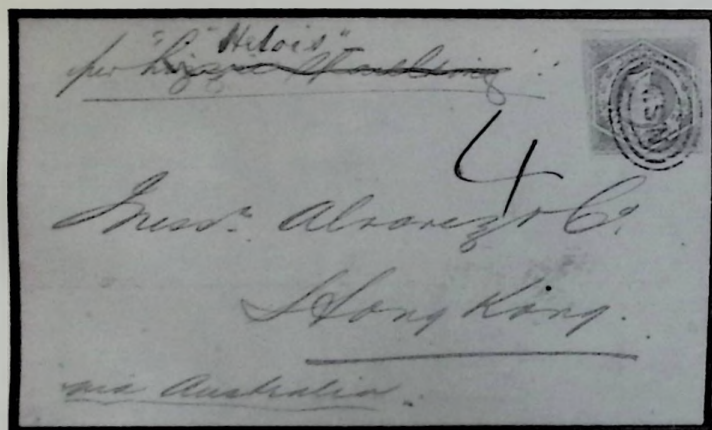 "Helois"
per
4
Messrs. Alvarez & Co.
Hong Kong.
via Australia.